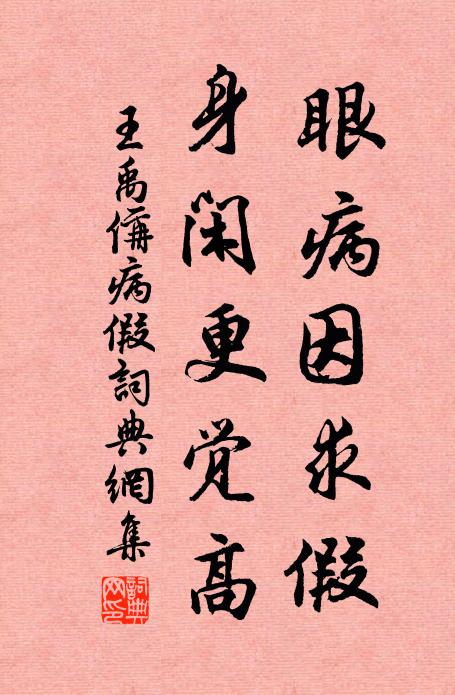 眼病因求假
身闲更觉高
王禹偁病假詞典網集
詞典网印